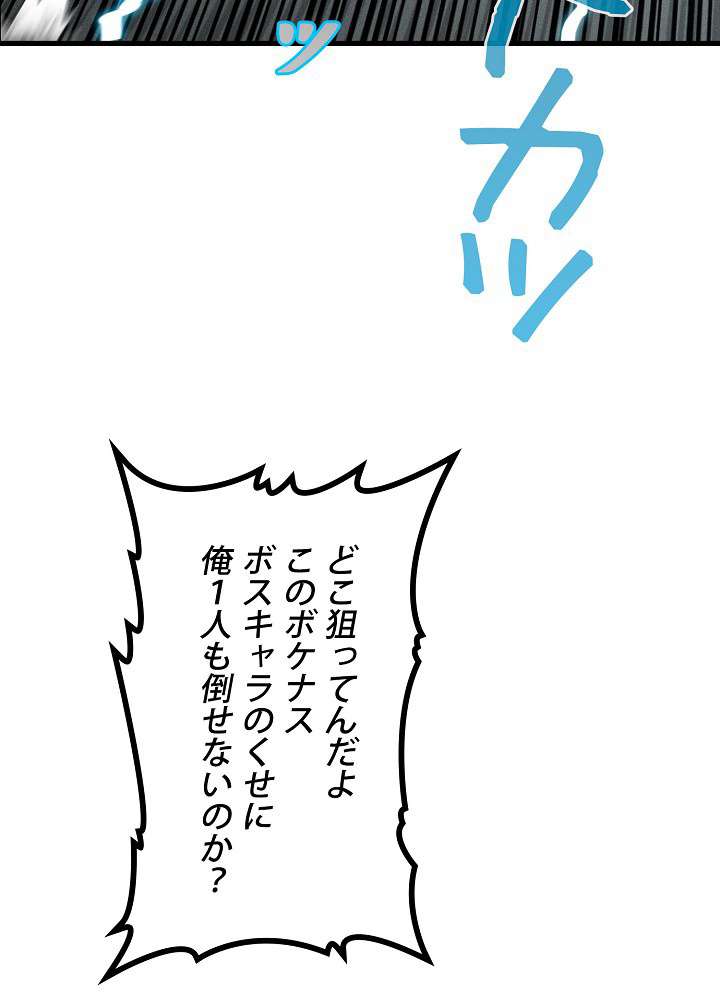 ッ
カッ
どこ狙ってんだよ
このボケナス
ボスキャラのくせに
俺1人も倒せないのか?